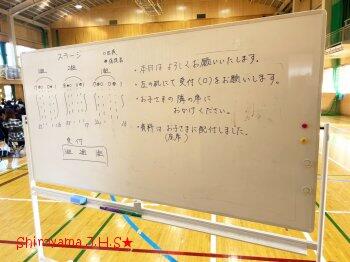 ステージ
○生徒
●保護者
1組 2組 3組
受付
1組 2組 3組
・本日はよろしくお願いいたします。
・左の机にて受付(○)をお願いします。
・お子さまの隣の席に
おかけください。
・資料はお子さまに配付しました。
(座席)
Shiroyama J.H.S★